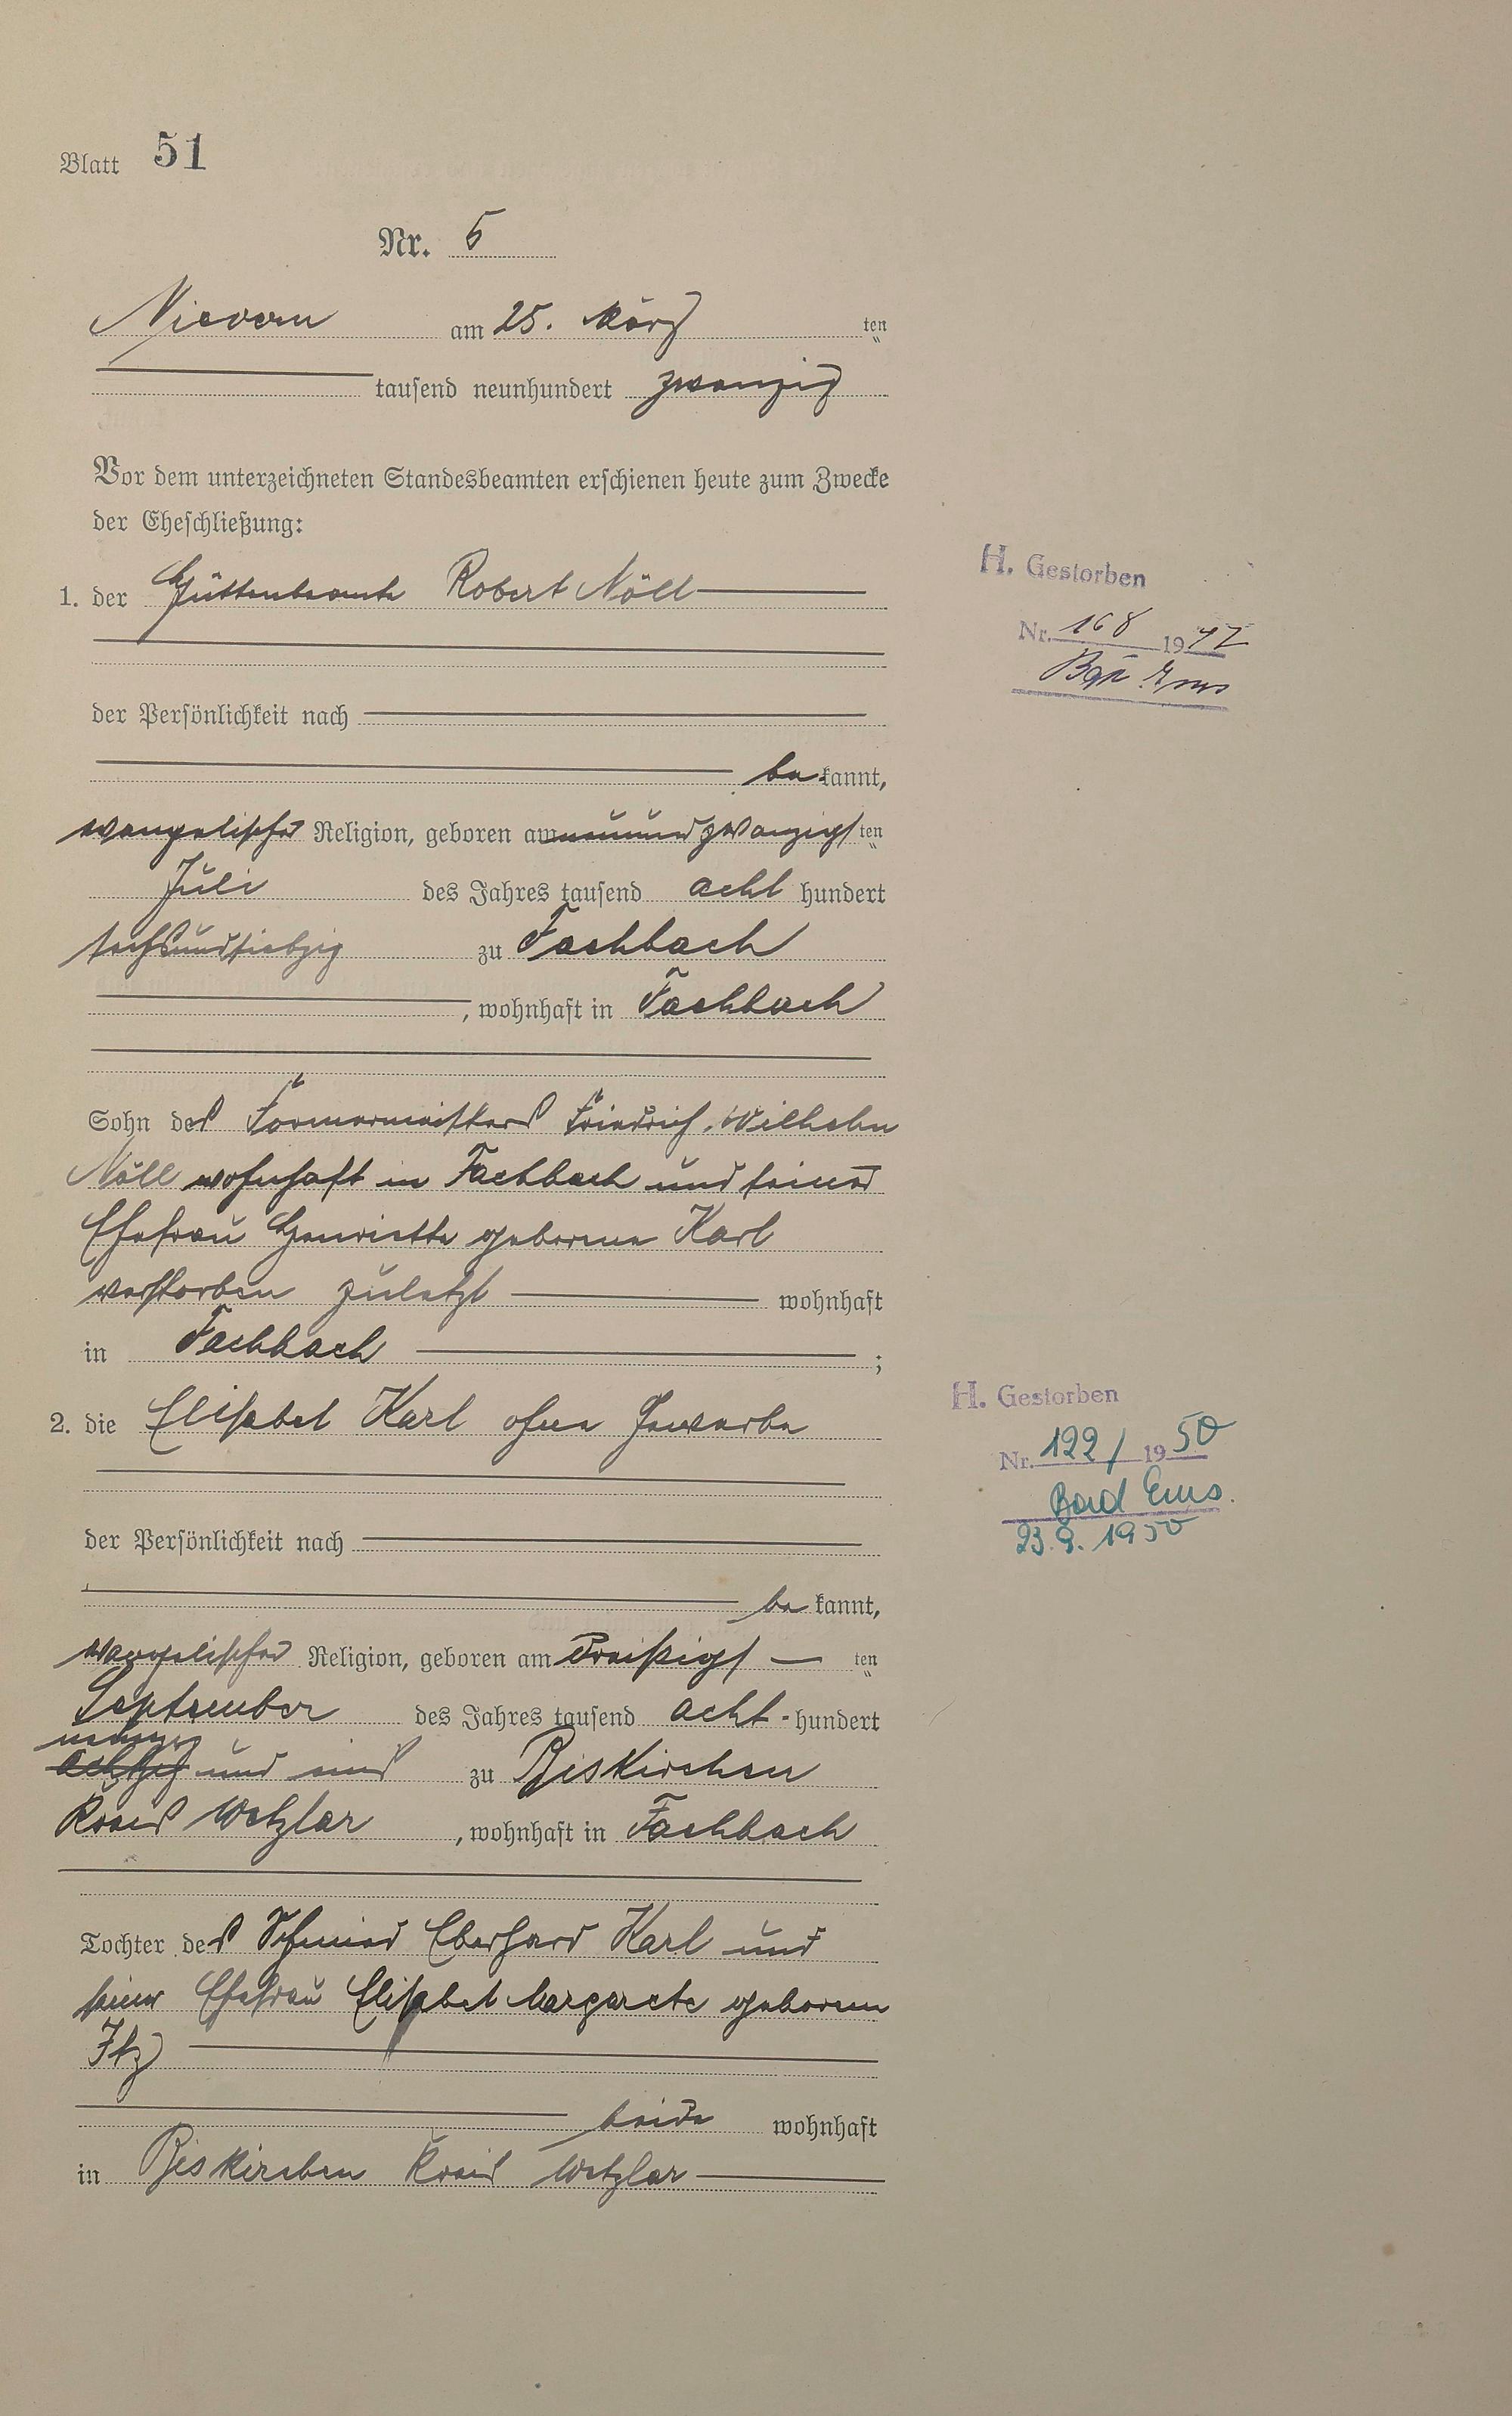 Blatt 51
Nr. 5
Nievern am 25. März ten
tausend neunhundert zwanzig
Vor dem unterzeichneten Standesbeamten erschienen heute zum Zwecke
der Eheschließung:
1. der Hüttenbeamte Robert Nöll
H. Gestorben
Nr. 168 19
Bad Ems
der Persönlichkeit nach
be kannt,
evangelischer Religion, geboren am neunundzwanzigsten
Juli des Jahres tausend acht hundert
sechsundsiebzig zu Fachbach
, wohnhaft in Fachbach
Sohn des Formermeisters Friedrich Wilhelm
Nöll wohnhaft in Fachbach und seiner
Ehefrau Henriette geborene Karl
verstorben zuletzt wohnhaft
in Fachbach ;
2. die Elisabet Karl ohne Gewerbe
H. Gestorben
Nr. 122/ 1950
Bad Ems.
23.9.1950
der Persönlichkeit nach
be kannt,
evangelischer Religion, geboren am dreißigst ten
September des Jahres tausend acht hundert
und eins zu Biskirchen
Kreis Wetzlar , wohnhaft in Fachbach
Tochter des Schmied Eberhard Karl und
seiner Ehefrau Elisabet Margarete geborene
Itz
beide wohnhaft
in Biskirchen Kreis Wetzlar